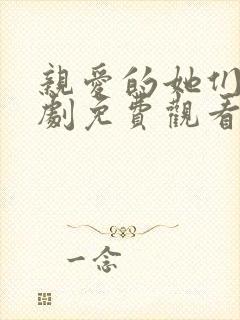 親愛的她们
劇免費觀看
一念